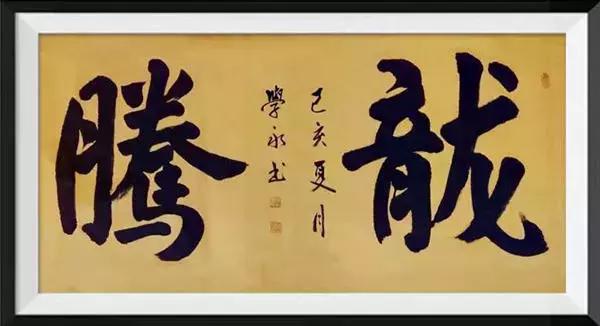 龍騰
己亥夏月
學永书